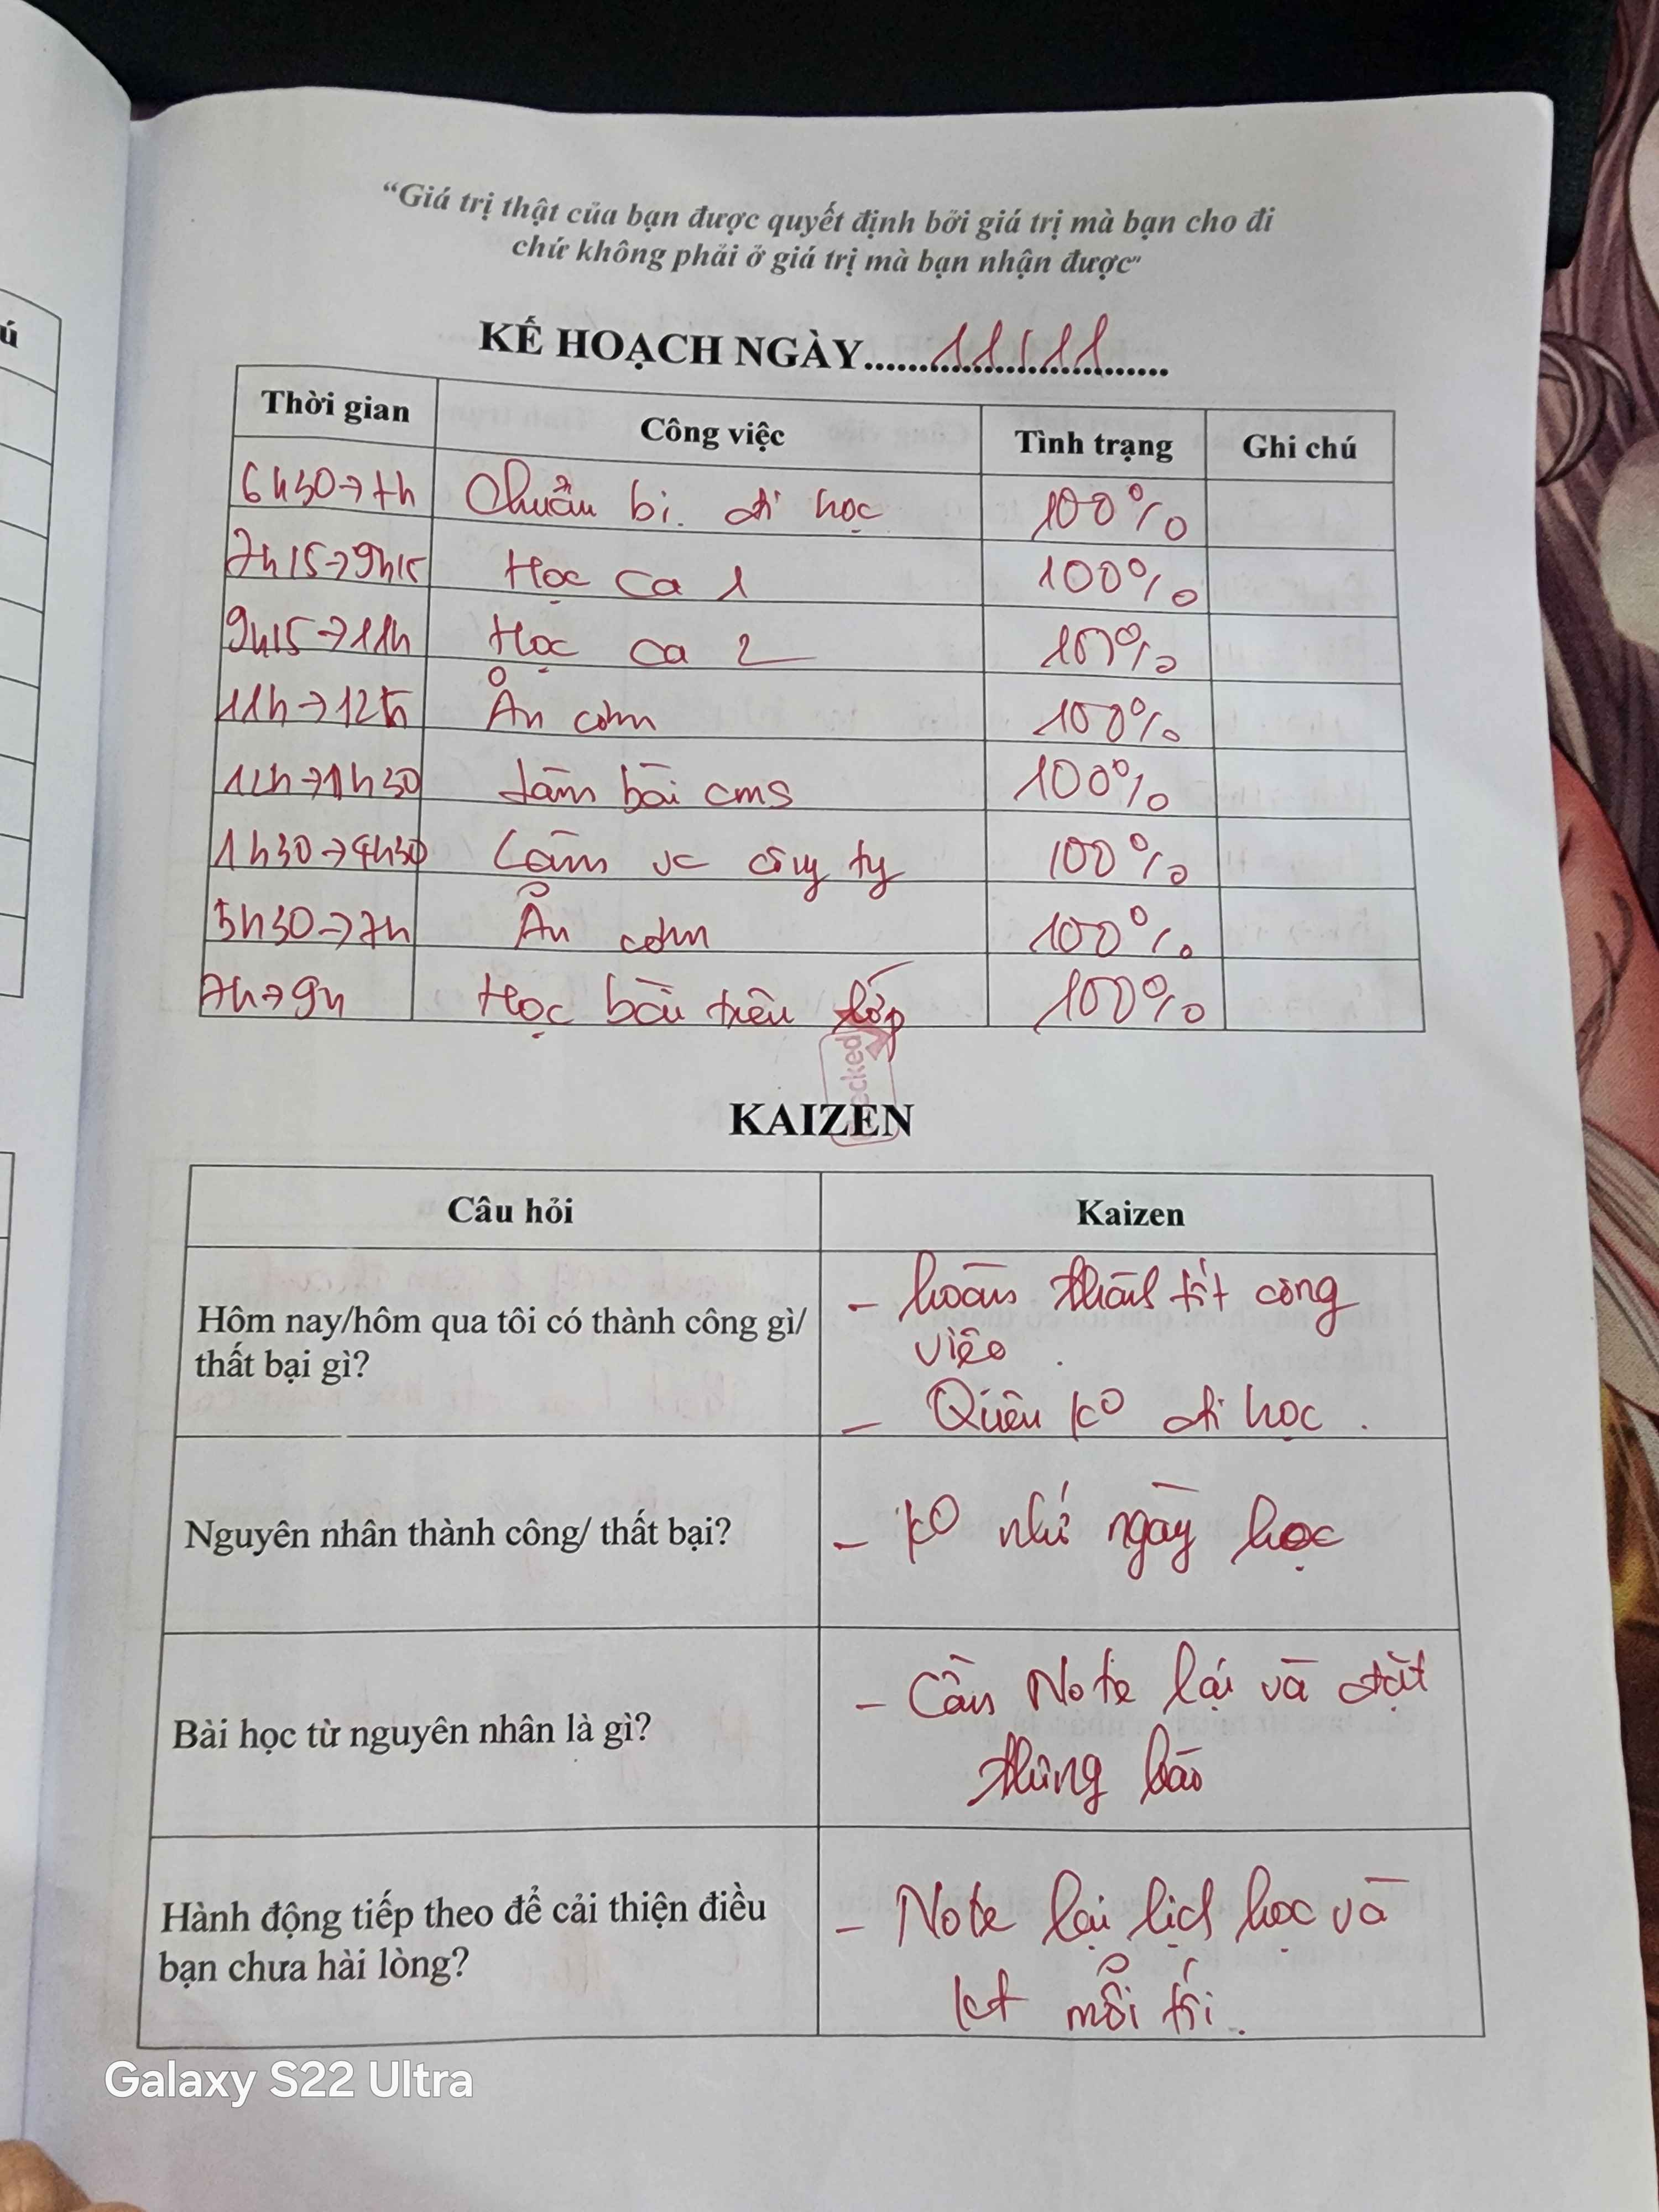 ú
"Giá trị thật của bạn được quyết định bởi giá trị mà bạn cho đi
chứ không phải ở giá trị mà bạn nhận được"
KẾ HOẠCH NGÀY......11/11......
Thời gian Công việc Tình trạng Ghi chú
6h30→7h Chuẩn bị đi học 100%
7h15→9h15 Học ca 1 100%
9h15→11h Học ca 2 100%
11h→12h Ăn cơm 100%
12h→1h30 Làm bài cms 100%
1h30→4h30 Làm vc công ty 100%
5h30→7h Ăn cơm 100%
7h→9h Học bài trên lớp 100%
ecked
KAIZEN
Câu hỏi Kaizen
Hôm nay/hôm qua tôi có thành công gì/
thất bại gì?
- hoàn thành tốt công
việc.
- Quên ko đi học.
Nguyên nhân thành công/ thất bại?
- ko nhớ ngày học
Bài học từ nguyên nhân là gì?
- Cần Note lại và đặt
thông báo
Hành động tiếp theo để cải thiện điều
bạn chưa hài lòng?
- Note lại lịch học và
kt mỗi tối.
Galaxy S22 Ultra